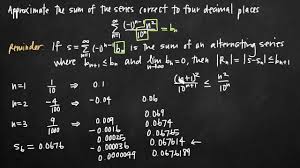 Approximate the sum of the series correct to four decimal places
∞ Σ n=1 (-1)^(n-1) n² / 10^n = bn
Reminder: If s = Σ (-1)^(n-1) bn is the sum of an alternating series
where bn+1 ≤ bn and lim n→∞ bn = 0, then |Rn| = |s-sn| ≤ bn+1
n=1 1/10 ⇒ 0.1 0.1
n=2 4/100 ⇒ -0.04 0.06
n=3 9/1000 ⇒ 0.009 0.069
-0.0016 0.0674
0.00025 0.06765
s6 = 0.0676 -0.000036 0.067614
0.0000049 0.0676189
(n+1)² / 10^(n+1) ≤ n² / 10^n